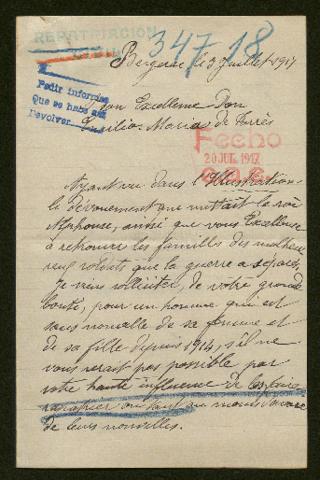 REPATRIACION
347-18
Bergerac le 3 Juillet 1917
Pedir informes
Que se haba
Devolver
Son Excellence Don
Emilio Maria de Torrès
Fecho
20 JUL. 1917
Ayant vu dans l'Illustration
le dévouement que mettait le roi
Alphonse, ainsi que vous Excellence
à retrouver les familles des malheu
reux soldats que la guerre a séparés,
Je viens solliciter, de votre grande
bonté, pour un homme qui est
sans nouvelle de sa femme et
de sa fille depuis 1914, s'il ne
vous serait pas possible par
votre haute influence de les faire
rapatrier ou tout au moins d'avoir
de leurs nouvelles.